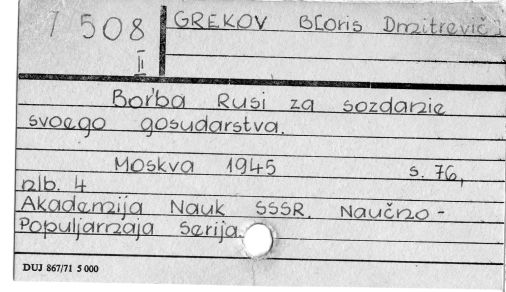 7 508 GREKOV B[oris Dmitrevič]
II
Bor'ba Rusi za sozdanie
svoego gosudarstva.
Moskva 1945 s. 76,
nlb. 4
Akademija Nauk SSSR. Naučno-
Populjarnaja Serija.
DUJ 867/71 5 000